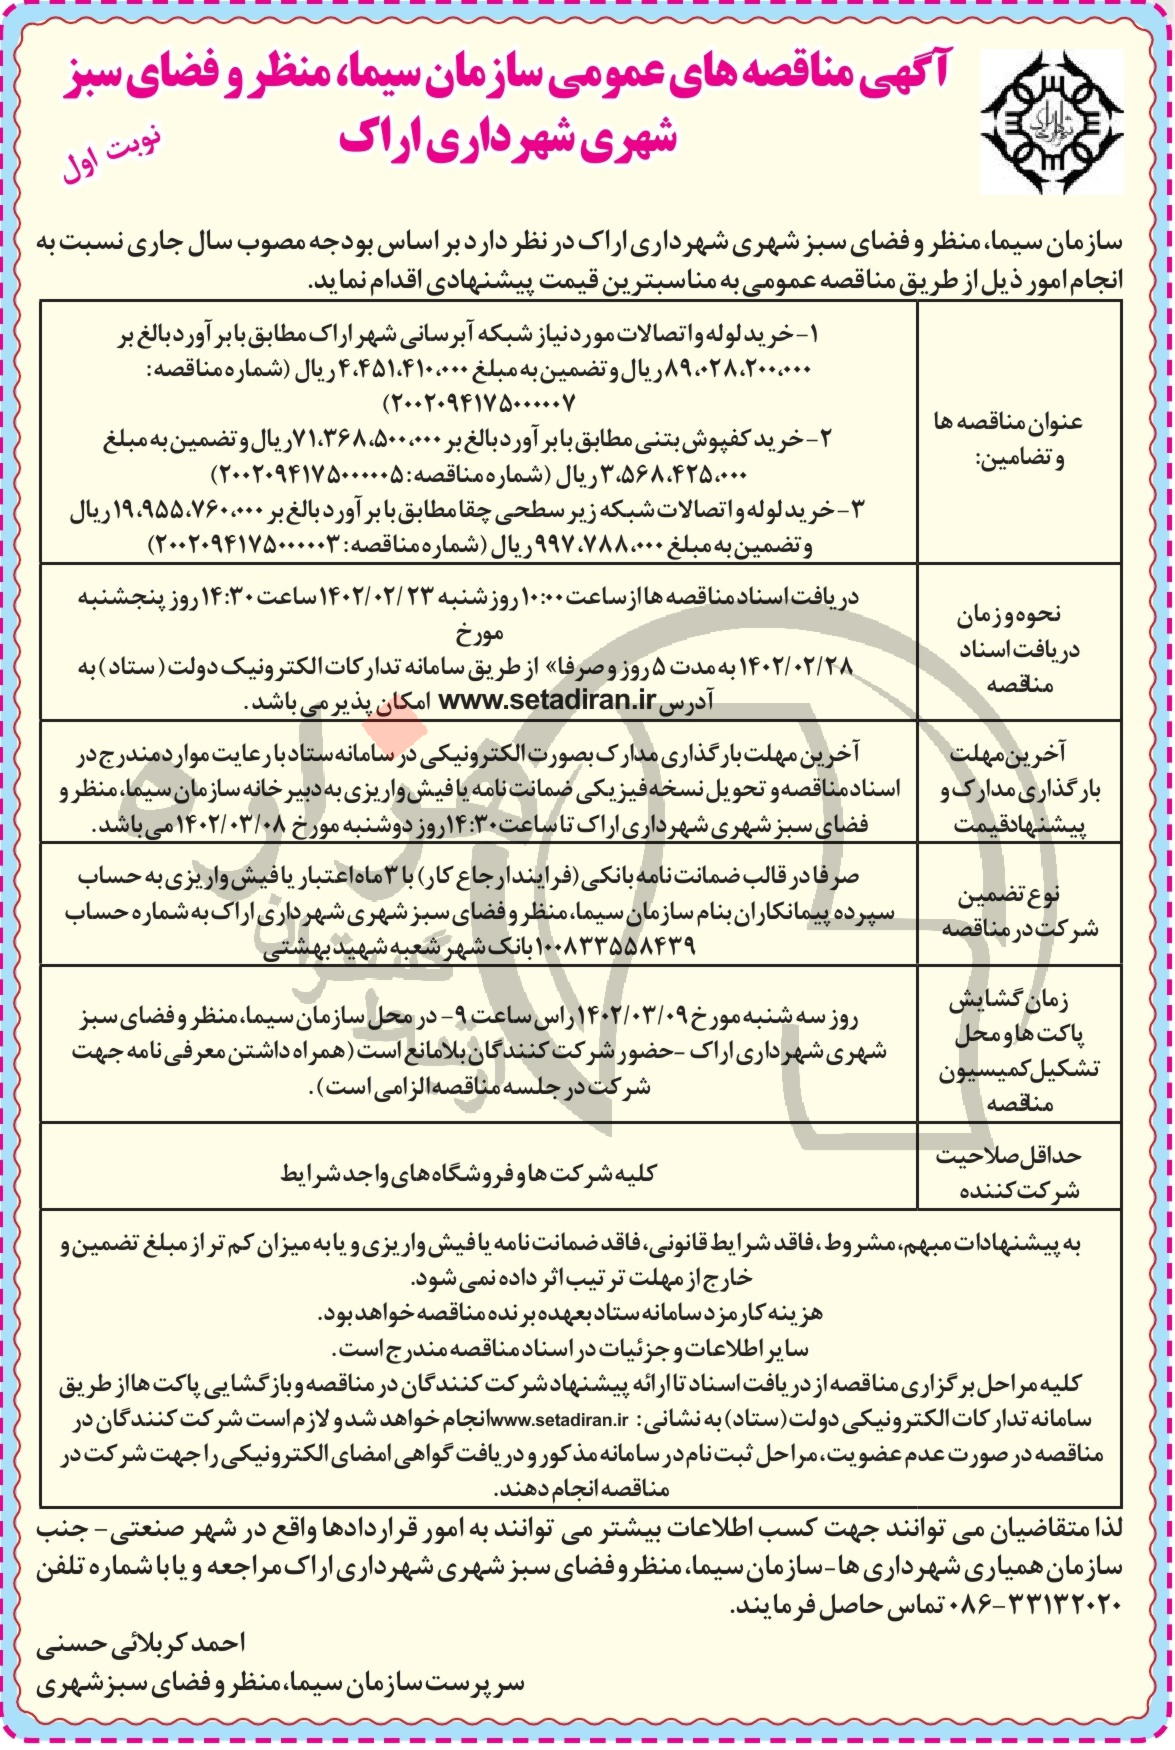 آگهی مناقصه های عمومی سازمان سیما، منظر و فضای سبز
شهری شهرداری اراک
نوبت اول
سازمان سیما، منظر و فضای سبز شهری شهرداری اراک در نظر دارد بر اساس بودجه مصوب سال جاری نسبت به
انجام امور ذیل از طریق مناقصه عمومی به مناسبترین قیمت پیشنهادی اقدام نماید.
عنوان مناقصه ها
و تضامین:
۱- خرید لوله و اتصالات مورد نیاز شبکه آبرسانی شهر اراک مطابق با برآورد بالغ بر
۸۹،۰۲۸،۲۰۰،۰۰۰ ریال و تضمین به مبلغ ۴،۴۵۱،۴۱۰،۰۰۰ ریال (شماره مناقصه:
۲۰۰۲۰۹۴۱۷۵۰۰۰۰۰۷)
۲- خرید کفپوش بتنی مطابق با برآورد بالغ بر ۷۱،۳۶۸،۵۰۰،۰۰۰ ریال و تضمین به مبلغ
۳،۵۶۸،۴۲۵،۰۰۰ ریال (شماره مناقصه: ۲۰۰۲۰۹۴۱۷۵۰۰۰۰۰۵)
۳- خرید لوله و اتصالات شبکه زیر سطحی چقا مطابق با برآورد بالغ بر ۱۹،۹۵۵،۷۶۰،۰۰۰ ریال
و تضمین به مبلغ ۹۹۷،۷۸۸،۰۰۰ ریال (شماره مناقصه: ۲۰۰۲۰۹۴۱۷۵۰۰۰۰۰۳)
نحوه و زمان
دریافت اسناد
مناقصه
دریافت اسناد مناقصه ها از ساعت ۱۰:۰۰ روز شنبه ۱۴۰۲/۰۲/۲۳ ساعت ۱۴:۳۰ روز پنجشنبه
مورخ
۱۴۰۲/۰۲/۲۸ به مدت ۵ روز و صرفا» از طریق سامانه تدارکات الکترونیک دولت (ستاد) به
آدرس www.setadiran.ir امکان پذیر می باشد.
آخرین مهلت
بارگذاری مدارک و
پیشنهاد قیمت
آخرین مهلت بارگذاری مدارک بصورت الکترونیکی در سامانه ستاد با رعایت موارد مندرج در
اسناد مناقصه و تحویل نسخه فیزیکی ضمانت نامه یا فیش واریزی به دبیرخانه سازمان سیما، منظر و
فضای سبز شهری شهرداری اراک تا ساعت ۱۴:۳۰ روز دوشنبه مورخ ۱۴۰۲/۰۳/۰۸ می باشد.
نوع تضمین
شرکت در مناقصه
صرفا در قالب ضمانت نامه بانکی (فرایند ارجاع کار) با ۳ ماه اعتبار یا فیش واریزی به حساب
سپرده پیمانکاران بنام سازمان سیما، منظر و فضای سبز شهری شهرداری اراک به شماره حساب
۱۰۰۸۳۳۵۵۸۴۳۹ بانک شهر شعبه شهید بهشتی
زمان گشایش
پاکت ها و محل
تشکیل کمیسیون
مناقصه
روز سه شنبه مورخ ۱۴۰۲/۰۳/۰۹ راس ساعت ۹- در محل سازمان سیما، منظر و فضای سبز
شهری شهرداری اراک - حضور شرکت کنندگان بلامانع است (همراه داشتن معرفی نامه جهت
شرکت در جلسه مناقصه الزامی است).
حداقل صلاحیت
شرکت کننده
کلیه شرکت ها و فروشگاه های واجد شرایط
به پیشنهادات مبهم، مشروط، فاقد شرایط قانونی، فاقد ضمانت نامه یا فیش واریزی و یا به میزان کم تر از مبلغ تضمین و
خارج از مهلت ترتیب اثر داده نمی شود.
هزینه کارمزد سامانه ستاد بعهده برنده مناقصه خواهد بود.
سایر اطلاعات و جزئیات در اسناد مناقصه مندرج است.
کلیه مراحل برگزاری مناقصه از دریافت اسناد تا ارائه پیشنهاد شرکت کنندگان در مناقصه و بازگشایی پاکت ها از طریق
سامانه تدارکات الکترونیکی دولت (ستاد) به نشانی: www.setadiran.ir انجام خواهد شد و لازم است شرکت کنندگان در
مناقصه در صورت عدم عضویت، مراحل ثبت نام در سامانه مذکور و دریافت گواهی امضای الکترونیکی را جهت شرکت در
مناقصه انجام دهند.
لذا متقاضیان می توانند جهت کسب اطلاعات بیشتر می توانند به امور قراردادها واقع در شهر صنعتی- جنب
سازمان همیاری شهرداری ها- سازمان سیما، منظر و فضای سبز شهری شهرداری اراک مراجعه و یا با شماره تلفن
۰۸۶-۳۳۱۳۲۰۲۰ تماس حاصل فرمایند.
احمد کربلائی حسنی
سرپرست سازمان سیما، منظر و فضای سبز شهری
هزاره
گستران
ارتباط